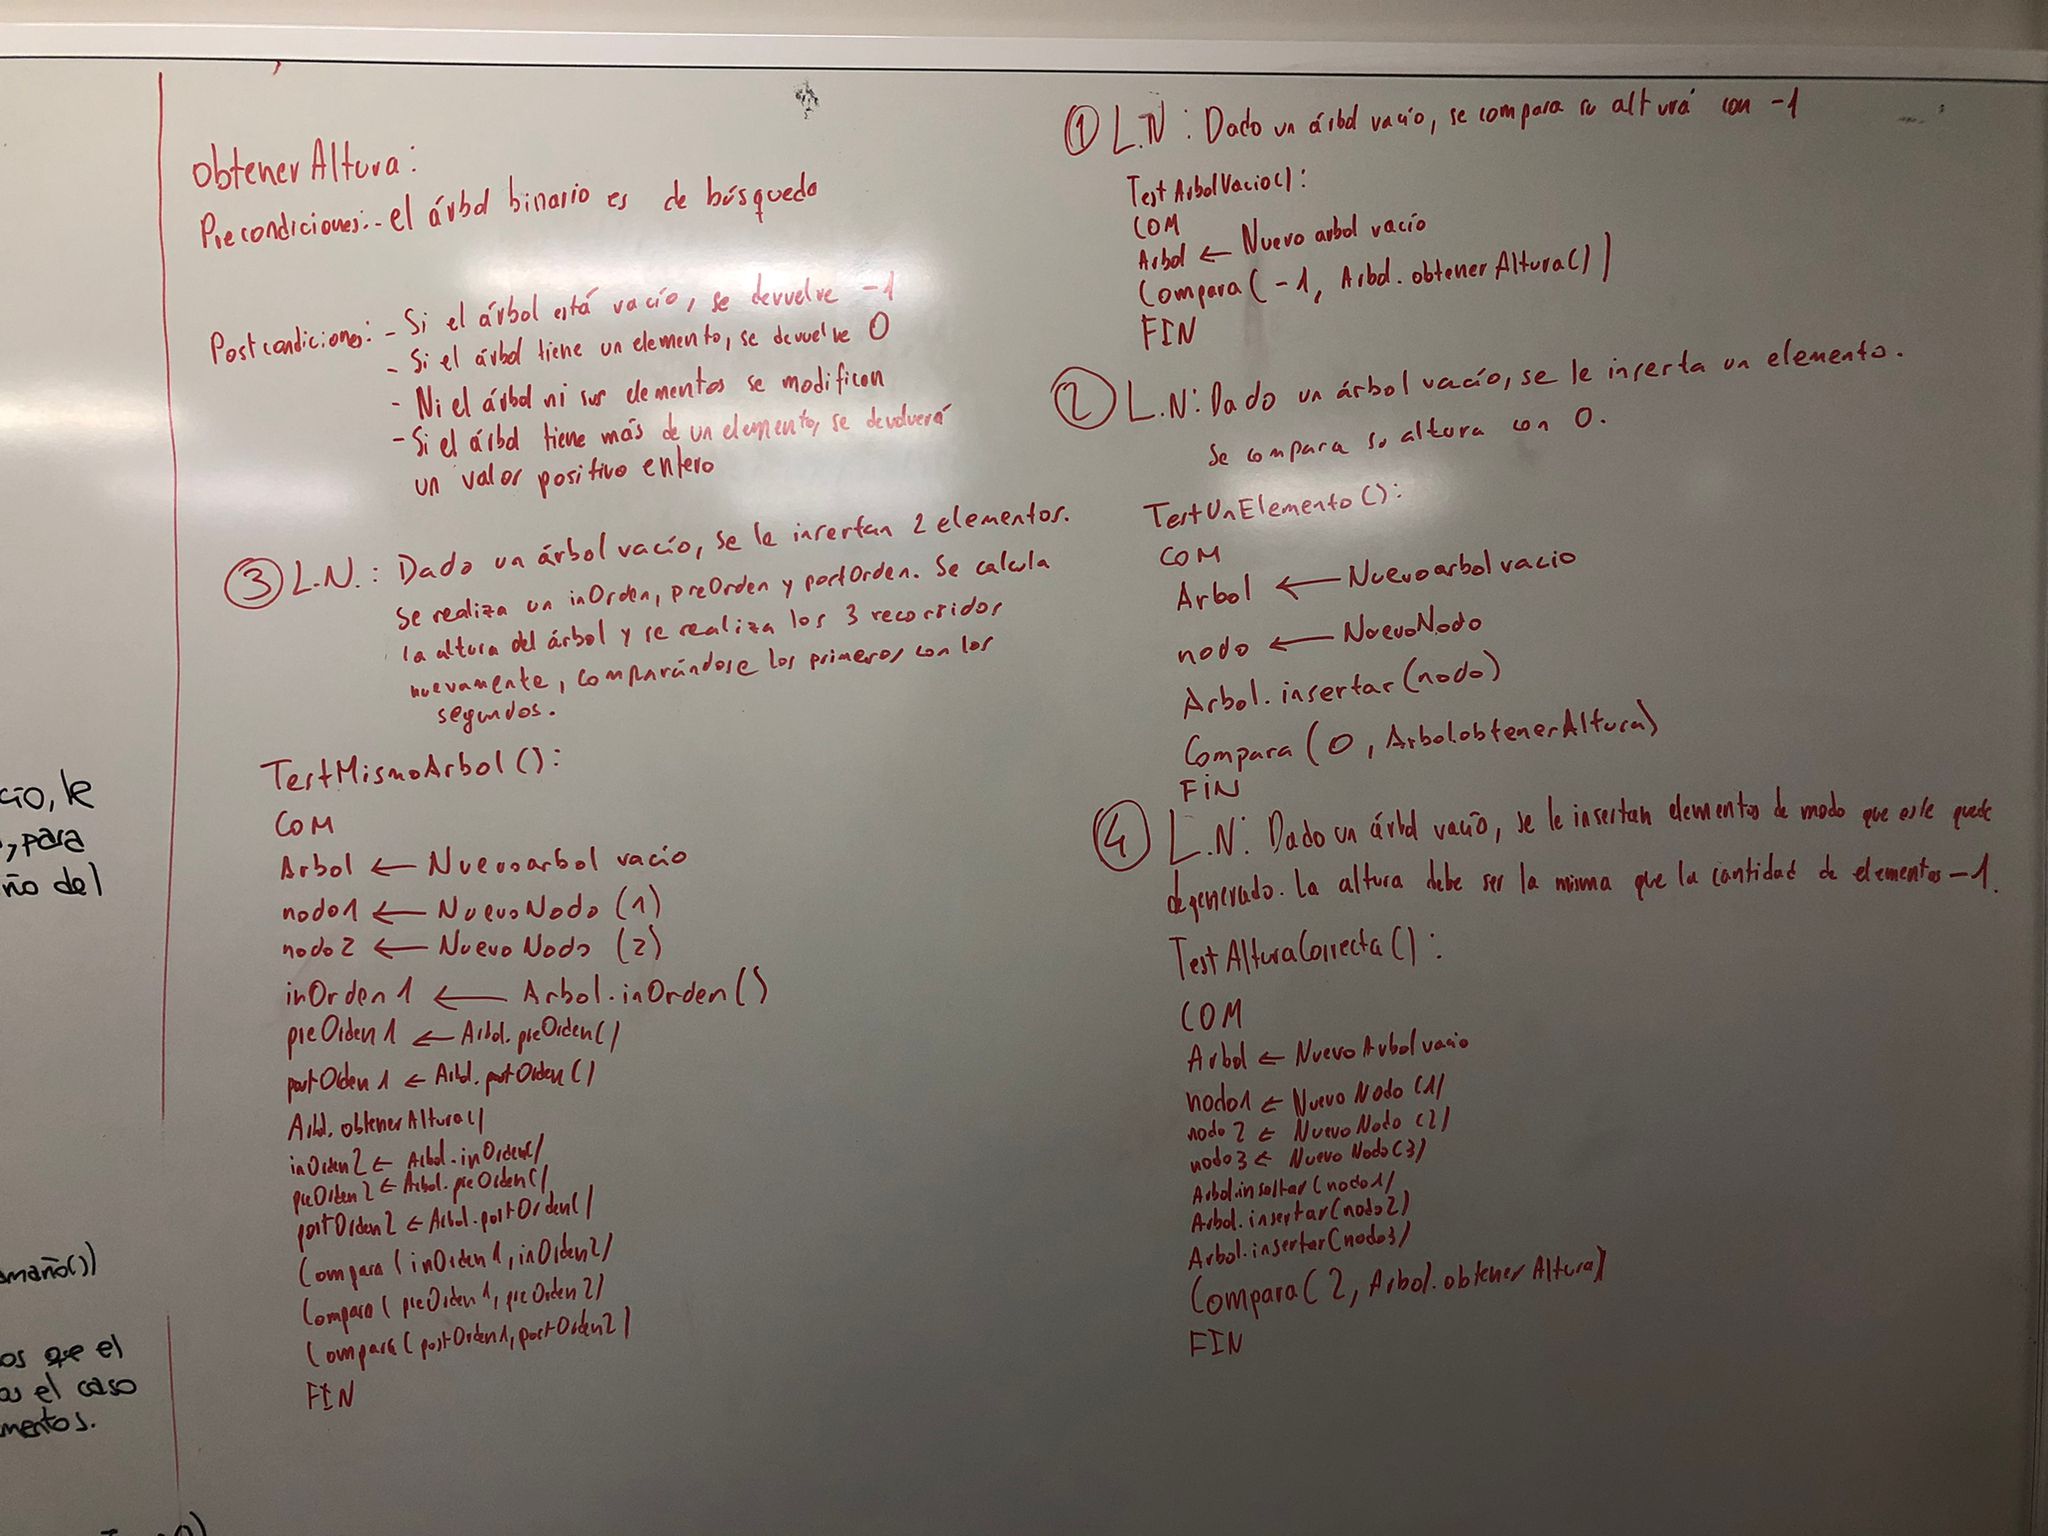 ObtenerAltura:
Precondiciones:- el árbol binario es de búsqueda
Postcondiciones: - Si el árbol está vacío, se devuelve -1
- Si el árbol tiene un elemento, se devuelve 0
- Ni el árbol ni sus elementos se modifican
- Si el árbol tiene más de un elemento, se devolverá
un valor positivo entero
③ L.N.: Dado un árbol vacío, se le insertan 2 elementos.
Se realiza un inOrden, preOrden y postOrden. Se calcula
la altura del árbol y se realiza los 3 recorridos
nuevamente, comparándose los primeros con los
segundos.
TestMismoArbol():
COM
Arbol ← Nuevo arbol vacio
nodo1 ← NuevoNodo (1)
nodo2 ← NuevoNodo (2)
inOrden1 ← Arbol.inOrden()
preOrden1 ← Arbol.preOrden()
postOrden1 ← Arbol.postOrden()
Arbol.obtenerAltura()
inOrden2 ← Arbol.inOrden()
preOrden2 ← Arbol.preOrden()
postOrden2 ← Arbol.postOrden()
Compara (inOrden1, inOrden2)
Compara (preOrden1, preOrden2)
Compara (postOrden1, postOrden2)
FIN
① L.N: Dado un árbol vacío, se compara su altura con -1
TestArbolVacio():
COM
Arbol ← Nuevo arbol vacío
Compara(-1, Arbol.obtenerAltura())
FIN
② L.N: Dado un árbol vacío, se le inserta un elemento.
Se compara su altura con 0.
TestUnElemento():
COM
Arbol ← Nuevo arbol vacio
nodo ← NuevoNodo
Arbol.insertar(nodo)
Compara (0, Arbol.obtenerAltura)
FIN
④ L.N: Dado un árbol vacío, se le insertan elementos de modo que este quede
degenerado. La altura debe ser la misma que la cantidad de elementos -1.
TestAlturaCorrecta():
COM
Arbol ← Nuevo Arbol vacio
nodo1 ← Nuevo Nodo (1)
nodo2 ← Nuevo Nodo (2)
nodo3 ← Nuevo Nodo (3)
Arbol.insertar(nodo1)
Arbol.insertar(nodo2)
Arbol.insertar(nodo3)
Compara(2, Arbol.obtenerAltura)
FIN
le
, para
ño del
maño())
os que el
el caso
mentos.